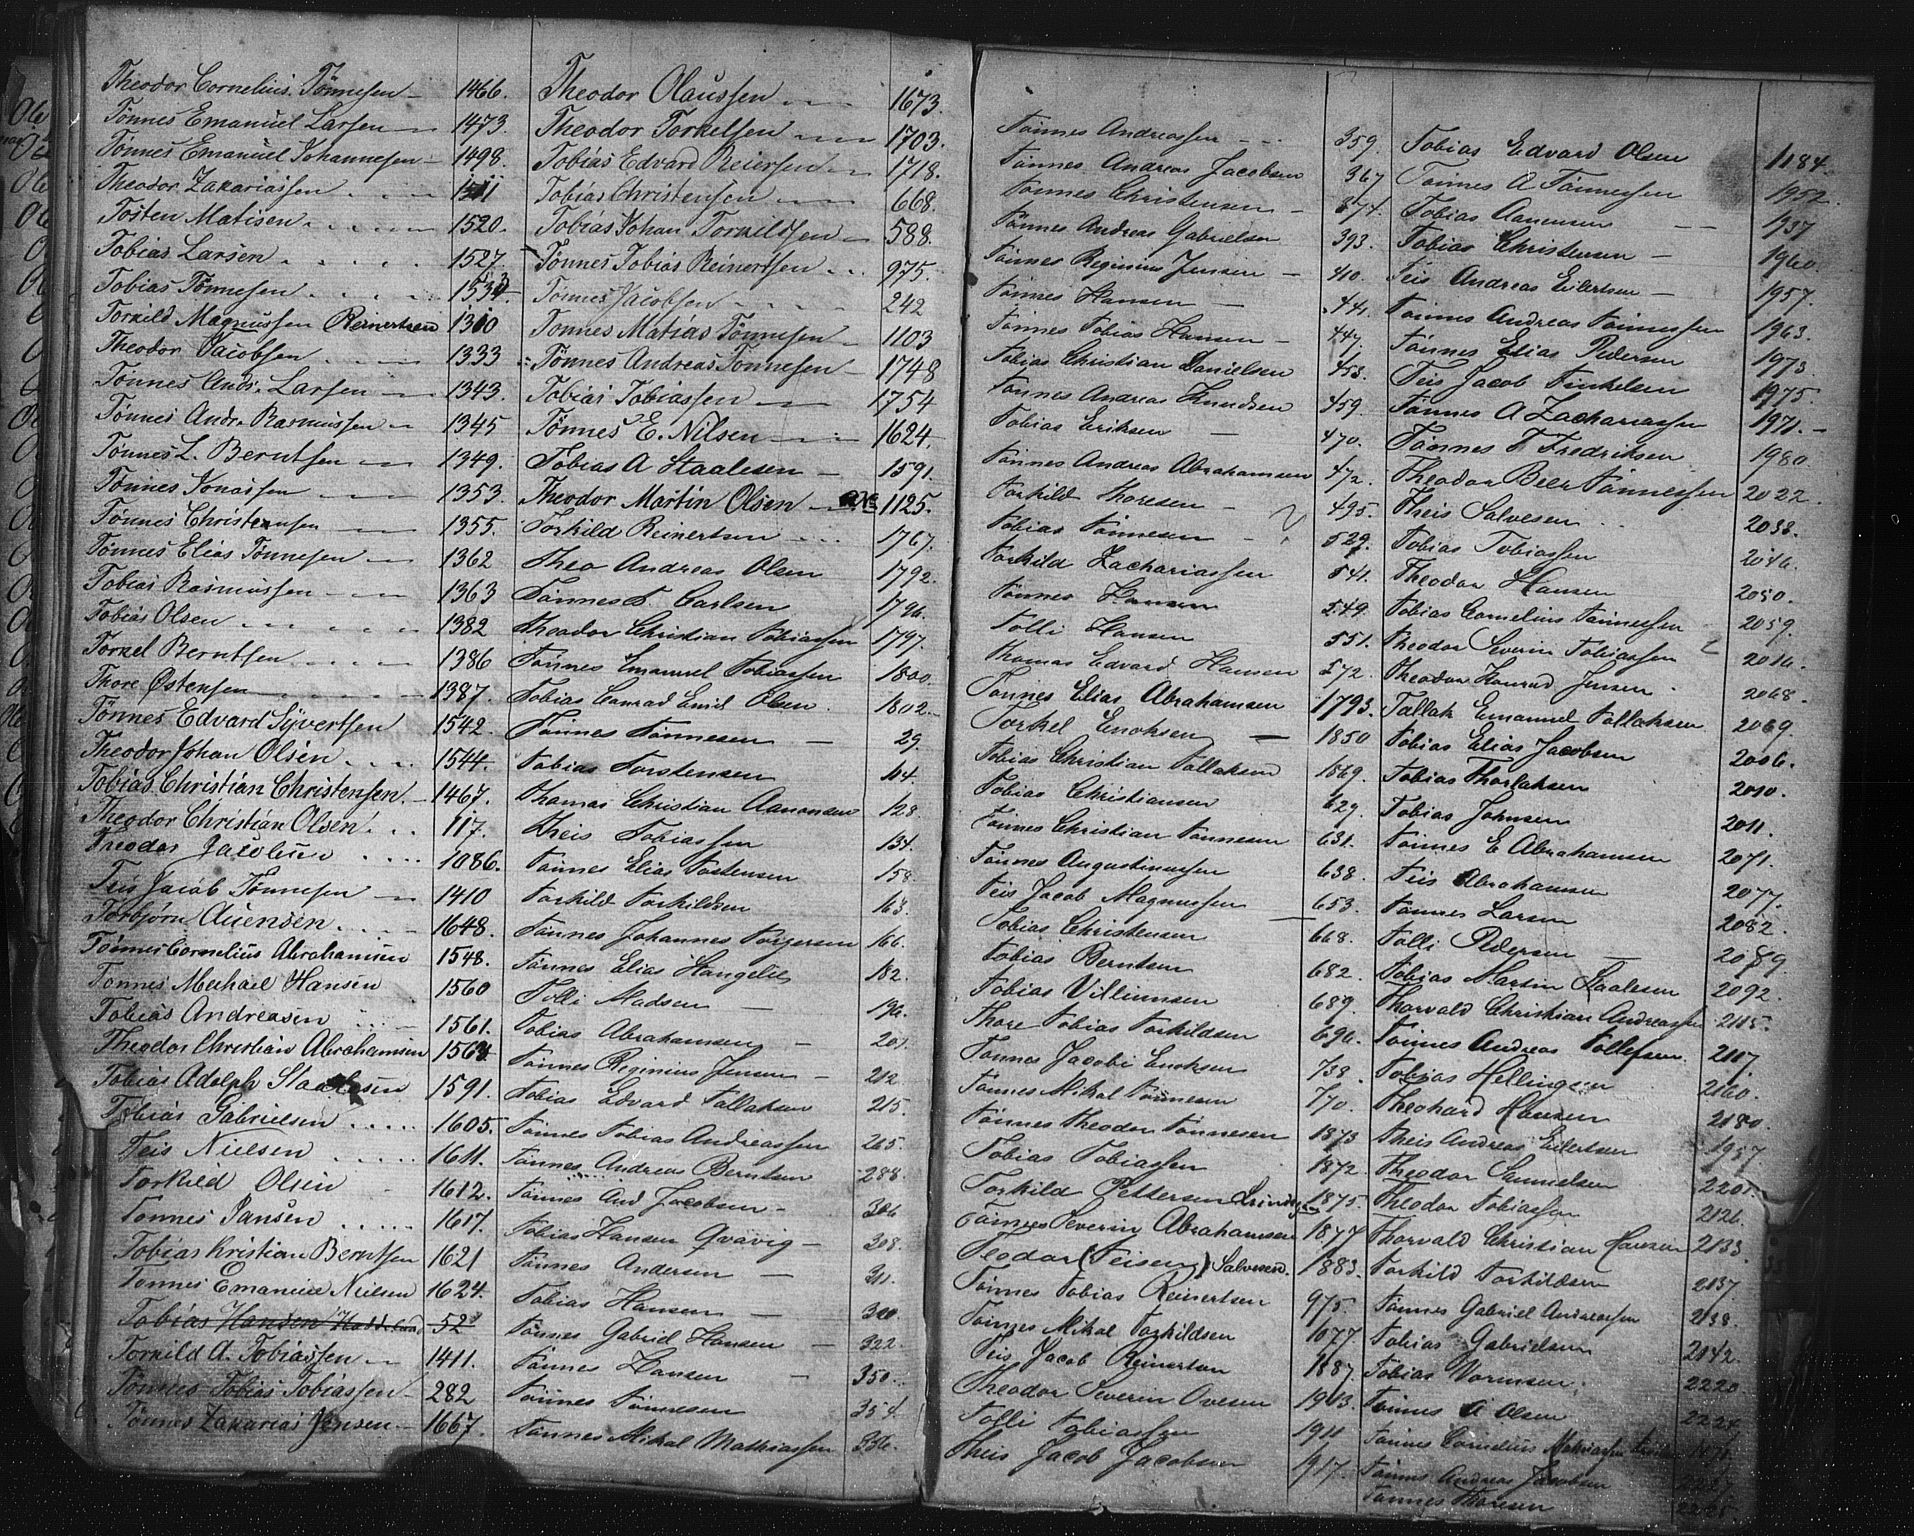 Theodor Cornelius Tönnesen 1466.
Tönnes Emanuel Larsen 1473.
Tönnes Emanuel Johannesen 1498.
Theodor Zakariassen 1511
Tosten Matisen 1520.
Tobias Larsen 1527.
Tobias Tönnesen
Torkild Magnussen Reinertsen 1310
Theodor Jacobsen 1333
Tönnes Andr. Larsen 1343.
Tönnes Andr. Rasmussen 1345
Tönnes L. Berntsen 1349.
Tönnes Jonassen 1353.
Tönnes Christensen 1355.
Tönnes Elias Tönnesen 1362
Tobias Rasmussen 1363
Tobias Olsen 1382
Torkel Berntsen 1386
Thore Østensen 1387.
Tönnes Edvard Syvertsen 1542.
Theodor Johan Olsen 1544.
Tobias Christian Christensen 1467.
Theodor Christian Olsen 117.
Theodor Jacobsen 1086.
Teis Jacob Tönnesen 1410
Torbjörn Auensen 1648.
Tönnes Cornelius Abrahamsen 1548.
Tonnes Meihail Hansen 1560
Tobias Andreasen 1561.
Theodor Christian Abrahamsen
Tobias Adolph Staalesen 1591.
Tobias Gabrielsen 1605.
Teis Nielsen 1611.
Torkild Olsen 1612.
Tonnes Jansen 1617.
Tobias Kristian Berntsen 1621
Tonnes Emanuel Nielsen 1624.
Tobias Hansen 52
Torkild A. Tobiassen 1411.
Tönnes Tobias Tobiassen 282
Tönnes Zakarias Jensen 1667.
Theodor Olaussen 1673.
Theodor Torkelsen 1703.
Tobias Edvard Reiersen 1718.
Tobias Christensen 668.
Tobias Johan Torkildsen 588.
Tönnes Tobias Reinertsen 975.
Tönnes Jacobsen 242
Tönnes Matias Tönnesen 1103
Tønnes Andreas Tonnesen 1748
Tobias Tobiassen 1754
Tönnes E. Nilsen 1624.
Tobias A Staalesen 1591.
Theodor Martin Olsen 1125.
Torkild Reinertsen 1767.
Theo Andreas Olsen 1792.
Tönnes T. Carlsen 1796.
Theodor Christian Tobiassen 1797.
Tönnes Emanuel Tobiassen 1800.
Tobias Conrad Emil Olsen 1802.
Tönnes Tönnesen 29.
Tobias Torstensen 104.
Thomas Christian Aanonsen 128.
Theis Tobiassen 134.
Tönnes Elias Tostensen 158.
Torkild Torkildsen 163.
Tönnes Johannes Torgersen 166.
Tönnes Elias Stangelie 182.
Tolli Madsen 196.
Tobias Abrahamsen 201.
Tönnes Reginius Jensen 212.
Tobias Edvard Tallaksen 215.
Tönnes Tobias Andreassen 265.
Tönnes Andreas Berntsen 288.
Tönnes And Jacobsen 306.
Tobias Hansen Qvavig 308.
Tönnes Andersen 311.
Tobias Hansen 320.
Tönnes Gabriel Hansen 322.
Tönnes Hansen 350.
Tönnes Tönnesen 354.
Tönnes Mikal Mathiassen 356.
Tönnes Andreassen 359.
Tönnes Andreas Jacobsen 367
Tönnes Christensen 374.
Tönnes Andreas Gabrielsen 393.
Tönnes Reginius Jensen 410.
Tönnes Hansen 441.
Tönnes Tobias Hansen 447.
Tobias Christian Danielsen 453.
Tönnes Andreas Knudsen 459.
Tobias Eriksen 470.
Tönnes Andreas Abrahamsen 472.
Torkild Thoresen 495.
Tobias Tönnesen 529.
Torkild Zachariassen 541.
Tönnes Hansen 549.
Tolli Hansen 551.
Thomas Edvard Hansen 572.
Tönnes Elias Abrahamsen 1793.
Torkel Enoksen 1850
Tobias Christian Tallaksen 1869.
Tobias Christiansen 629.
Tönnes Christian Tönnesen 631.
Tönnes Augustinusen 638.
Teis Jacob Magnussen 653.
Tobias Christensen 668.
Tobias Berntsen 682.
Tobias Villumsen 689.
Thore Tobias Torkildsen 696.
Tönnes Jacobi Enoksen 738.
Tönnes Mikal Tönnesen 770.
Tönnes Theodor Tönnesen 1873
Tobias Tobiassen 1872.
Torkild Pettersen 1875.
Tönnes Severin Abrahamsen 1877
Teodor (Teisen) Salvesen. 1883.
Tönnes Tobias Reinertsen 975.
Tönnes Mikal Torkildsen 1077.
Teis Jacob Reinertsen 1887.
Theodor Severin Ovesen 1903.
Tolli Tobiassen 1911
Theis Jacob Jacobsen 1917.
Tobias Edvard Olsen 1184.
Tönnes A Tönnessen 1952.
Tobias Aanensen 1937
Tobias Christensen 1960.
Teis Andreas Eilertsen 1957.
Tönnes Andreas Tönnessen 1963.
Tönnes Elias Pedersen 1973.
Teis Jacob Terkelsen 1975.
Tönnes A Zachariassen 1971.
Tönnes T Fredriksen 1980.
Theodor Beer Tönnessen 2022.
Theis Salvesen 2038.
Tobias Tobiassen 2046.
Theodor Hansen 2050.
Tobias Cornelius Tönnessen 2059.
Theodor Severin Tobiassen 2016.
Theodor Konrad Jensen 2068.
Tallak Emanuel Tallaksen 2069.
Tobias Elias Jacobsen 2006.
Tobias Thorlaksen 2010.
Tobias Johnsen 2011.
Tönnes E Abrahamsen 2071.
Teis Abrahamsen 2077.
Tönnes Larsen 2082.
Tolli Pedersen 2089
Tobias Martin Staalesen 2092.
Thorvald Christian Andreassen 2115.
Tönnes Andreas Tollefsen 2117.
Tobias Hellingsen 2160.
Theohard Hansen 2180.
Theis Andreas Eilertsen 1957
Theodor Samuelsen 2201.
Theodor Tobiassen 2126.
Thorvald Christian Hansen 2133.
Torkild Torkildsen 2137.
Tönnes Gabriel Andreassen 2138.
Tobias Gabrielsen 2142.
Tobias Vormsen 2220
Tönnes A Olsen 2224.
Tönnes Cornelius Mathiassen
Tönnes Andreas Jacobsen 2227
Tönnes Thoresen 2225